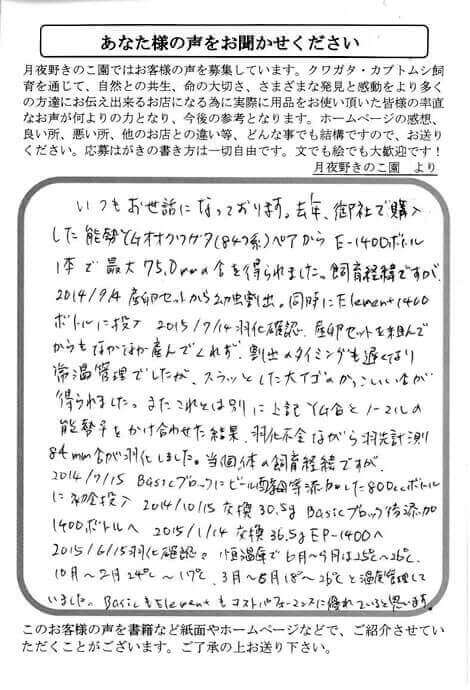 あなた様の声をお聞かせください
月夜野きのこ園ではお客様の声を募集しています。クワガタ・カブトムシ飼
育を通じて、自然との共生、命の大切さ、さまざまな発見と感動をより多く
の方達にお伝え出来るお店になる為に実際に用品をお使い頂いた皆様の率直
なお声が何よりの力となり、今後の参考となります。ホームページの感想、
良い所、悪い所、他のお店との違い等、どんな事でも結構ですので、お送り
ください。応募はがきの書き方は一切自由です。文でも絵でも大歓迎です！
月夜野きのこ園 より
いつもお世話になっております。去年、御社で購入
した能勢YGオオクワガタ(847系)ペアから E-1400ボトル
1本で最大75.0mm♀を得られました。飼育経緯ですが、
2014/9/4 産卵セットから幼虫割出。同時にElement1400
ボトルに投入 2015/7/14羽化確認、産卵セットを組んで
からもなかなか産んでくれず、割出のタイミングも遅くなり
常温管理でしたが、スラッとした大アゴのかっこいい
得られました。またこれとは別に上記YG♂とノーマルの
能勢♀をかけ合わせた結果、羽化不全ながら羽先計測
84mm♂が羽化しました。当個体の飼育経緯ですが、
2014/7/15 Basicブロックにビール酵母等添加した800ccボトル
に初令投入 2014/10/15 交換 30.5g Basicブロック 添加
1400ボトルへ 2015/1/14 交換 36.5g EP-1400へ
2015/6/15羽化確認。恒温庫で6月〜9月は25℃〜26℃、
10月〜2月 24℃〜17℃、3月〜5月18℃〜25℃と温度管理して
いました。BasicもElementもコストパフォーマンスに優れていると思います。
このお客様の声を書籍など紙面やホームページなどで、ご紹介させてい
ただくことがございます。ご了承の上お送り下さい。